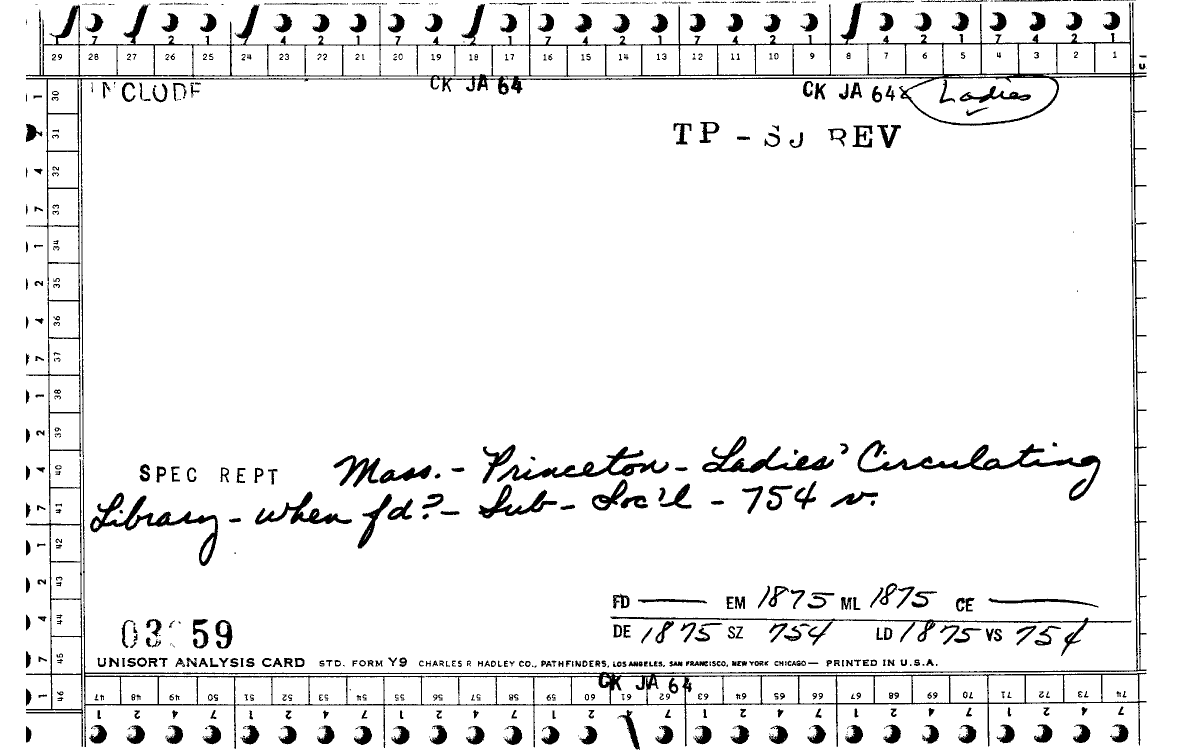 7 4 2 1 7 4 2 1 7 4 2 1 7 4 2 1 7 4 2 1 7 4 2 1
29 28 27 26 25 24 23 22 21 20 19 18 17 16 15 14 13 12 11 10 9 8 7 6 5 4 3 2 1
INCLUDE CK JA 64 CK JA 64 Ladies
TP - SJ REV
SPEC REPT Mass. - Princeton - Ladies' Circulating
Library - when fd? - Sub - Soc'l - 754 v.
FD — EM 1875 ML 1875 CE —
DE 1875 SZ 754 LD 1875 VS 754
03 59
UNISORT ANALYSIS CARD STD. FORM Y9 CHARLES R HADLEY CO., PATHFINDERS, LOS ANGELES, SAN FRANCISCO, NEW YORK CHICAGO — PRINTED IN U.S.A.
CK JA 64
30 31 32 33 34 35 36 37 38 39 40 41 42 43 44 45 46
1 2 4 7 1 2 4 7 1 2 4 7 1 2 4 7 1
47 48 49 50 51 52 53 54 55 56 57 58 59 60 61 62 63 64 65 66 67 68 69 70 71 72 73 74
1 2 4 7 1 2 4 7 1 2 4 7 1 2 4 7 1 2 4 7 1 2 4 7 1 2 4 7